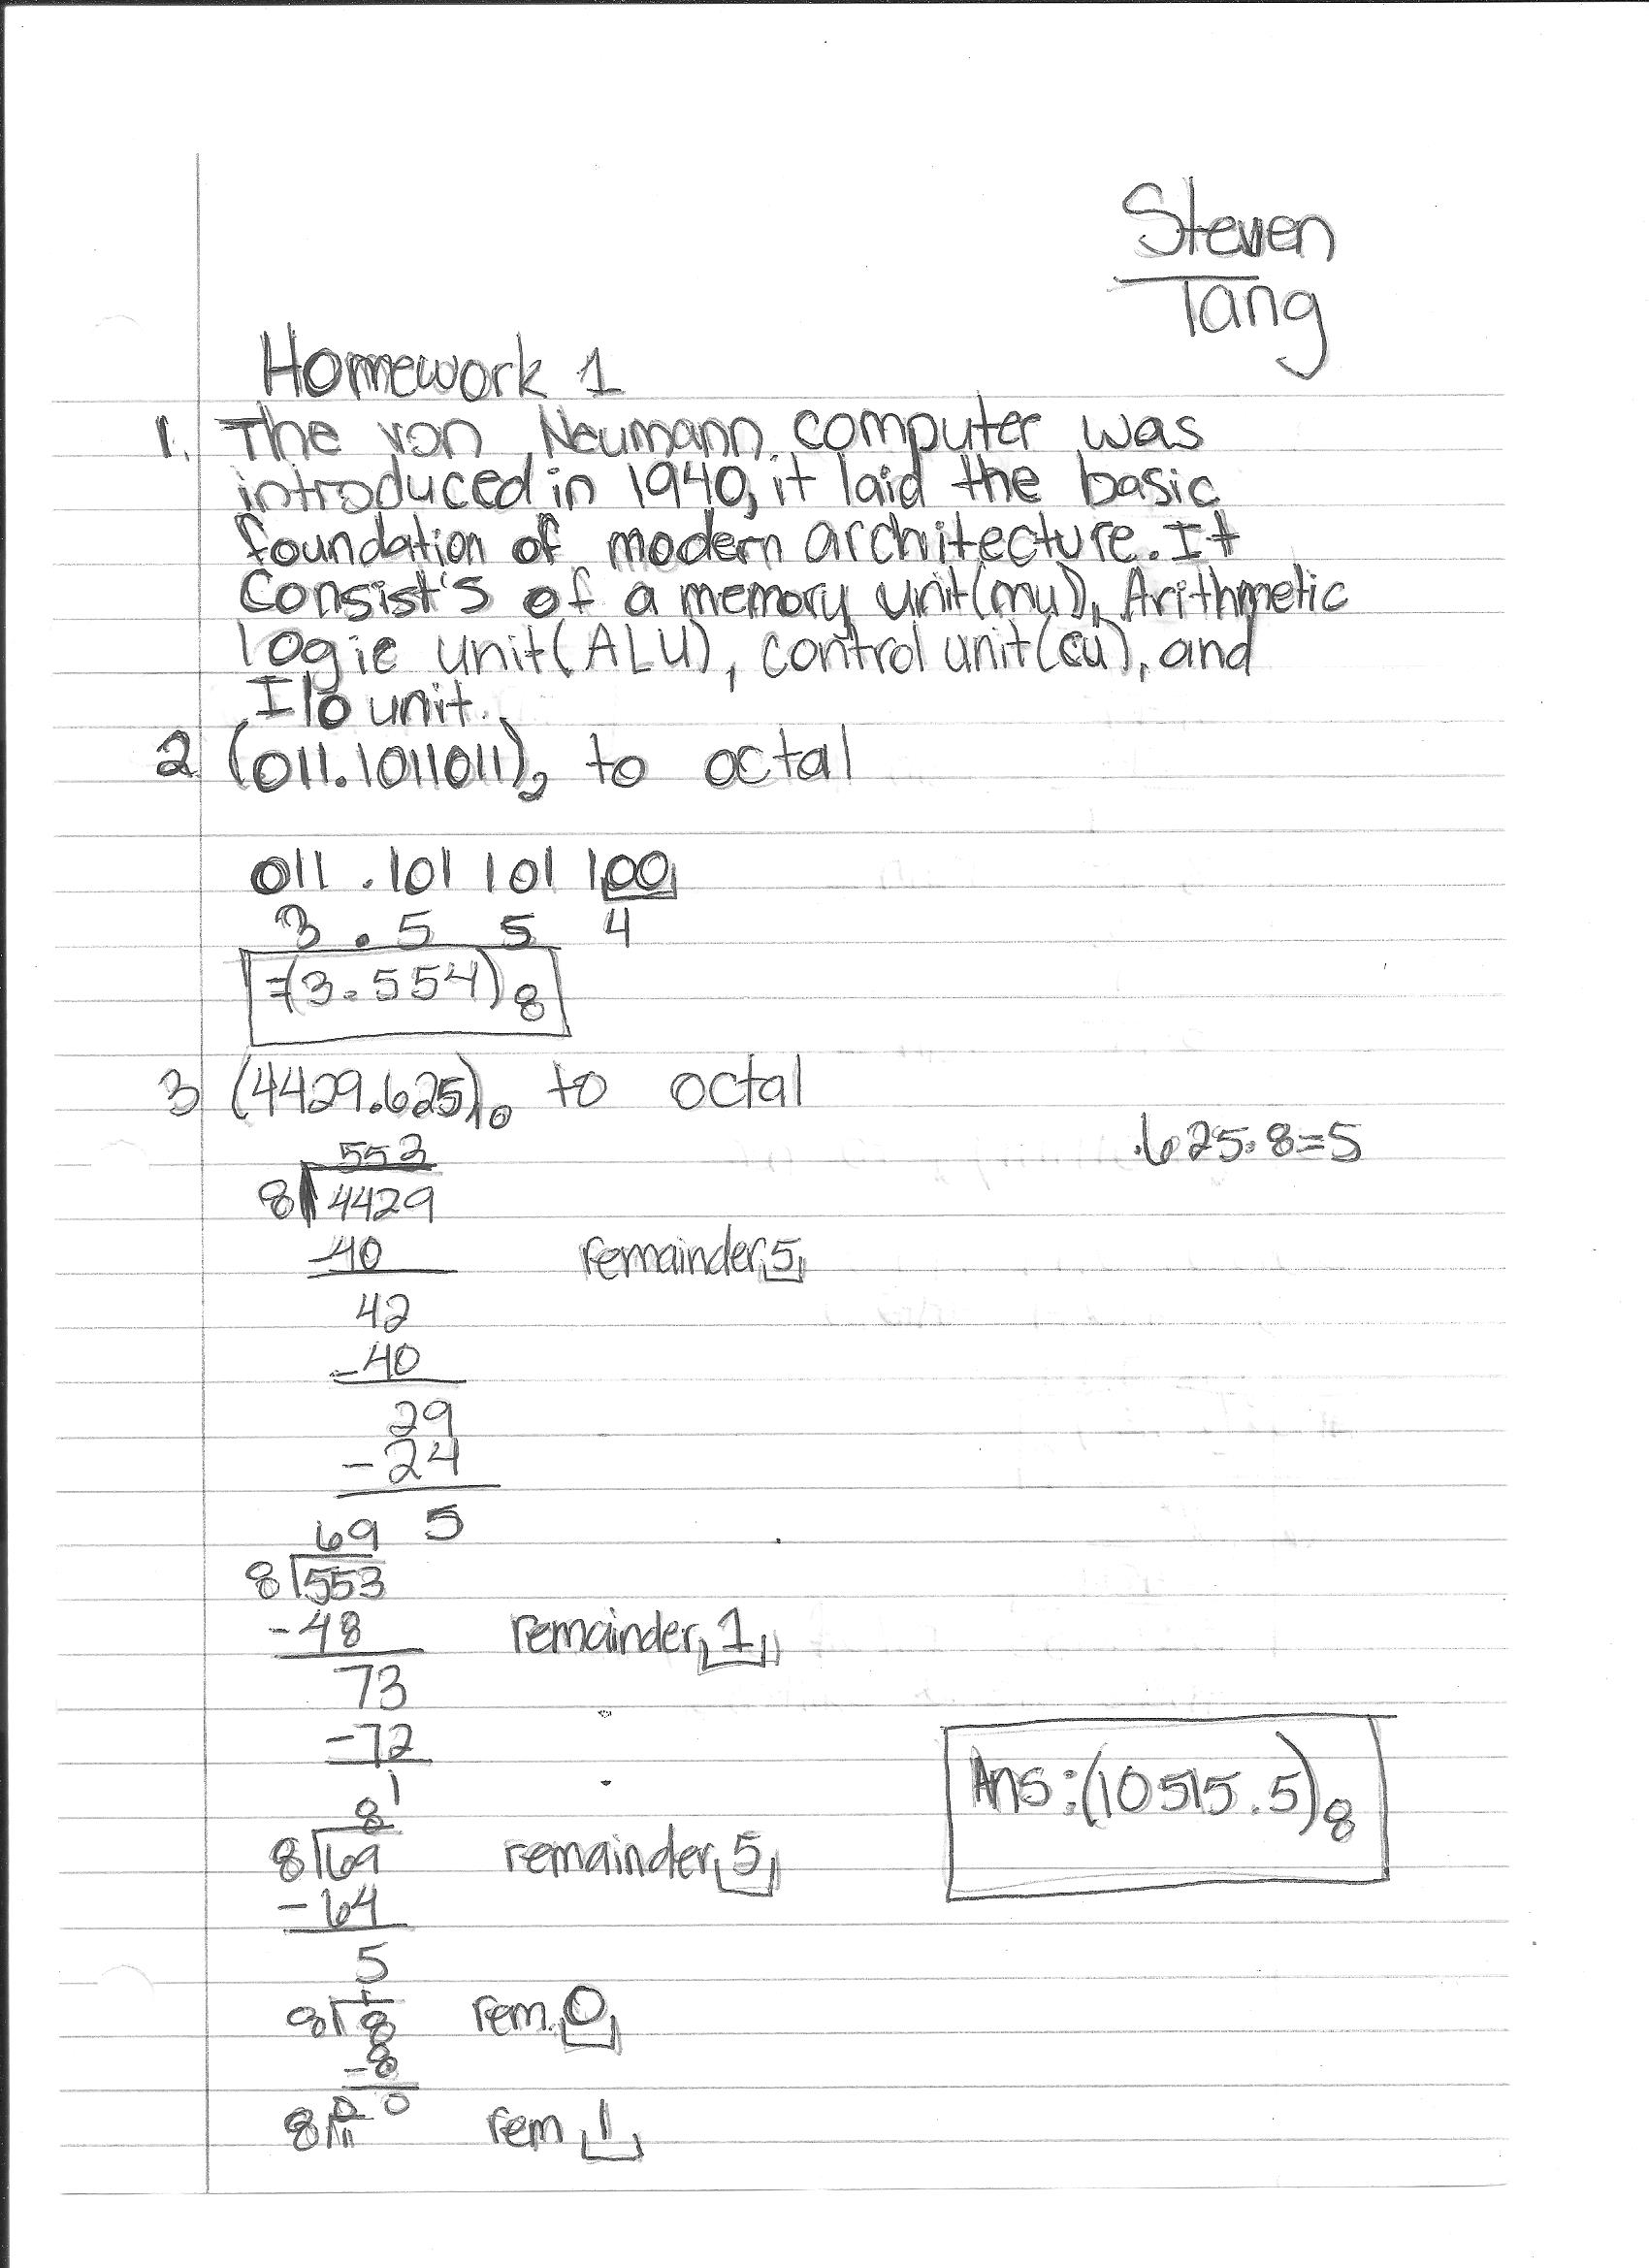 Steven
Tang
Homework 1
1. The von Neumann computer was
introduced in 1940, it laid the basic
foundation of modern architecture. It
Consist's of a memory unit(mu), Arithmetic
logic unit(ALU), control unit(cu), and
I/o unit.
2 (011.1011011)₂ to octal
011 .101 101 100
3 . 5 5 4
=(3.554)8
3 (4429.625)10 to octal
.625·8=5
553
8 4429
-40 remainder 5
42
-40
29
-24
5
69
8 553
-48 remainder 1
73
-72
1
8
8 69 remainder 5
-64
5
Ans:(10515.5)8
1
8 8 rem. 0
-8
0
0
8 1 rem 1